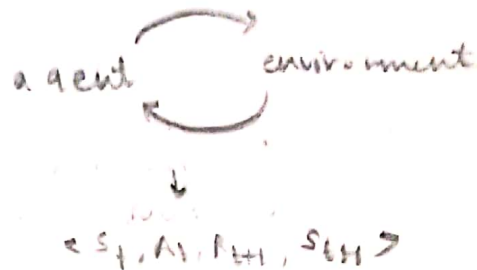 agent environment
< S_t, A_t, R_t+1, S_t+1 >